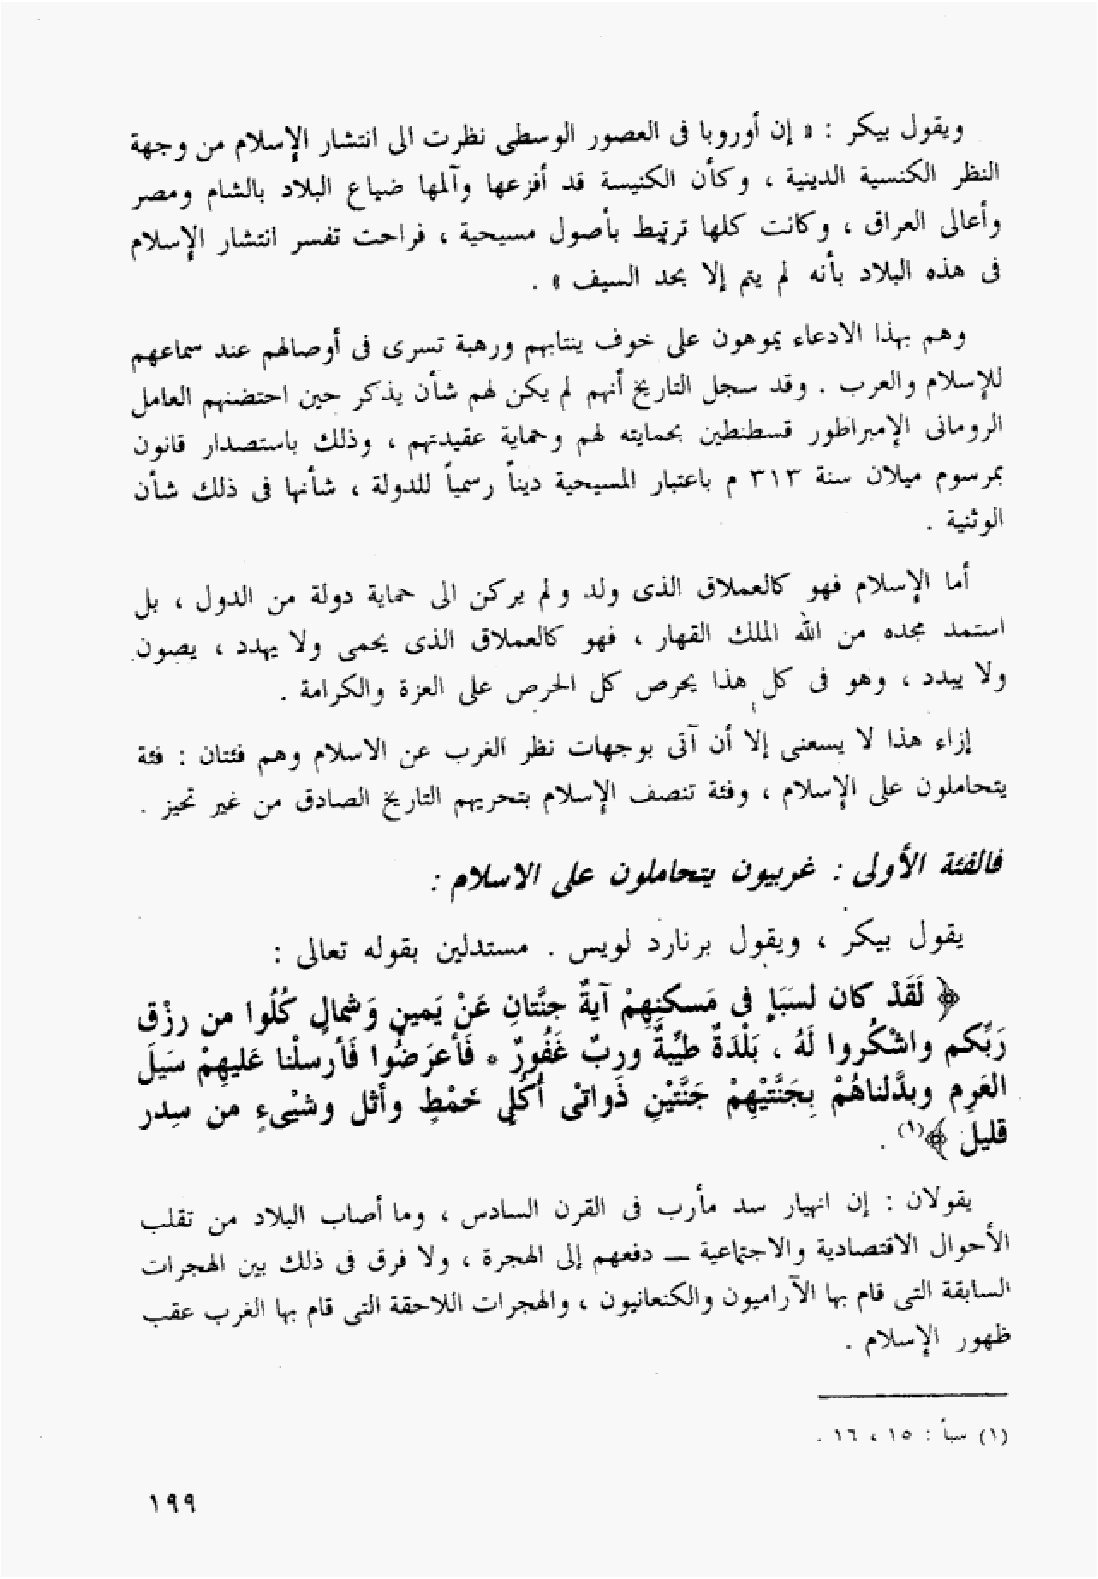 ويقول بيكر : « إن أوروبا فى العصور الوسطى نظرت الى انتشار الإسلام من وجهة
النظر الكنسية الدينية ، وكأن الكنيسة قد أفزعها وآلمها ضياع البلاد بالشام ومصر
وأعالى العراق ، وكانت كلها ترتبط بأصول مسيحية ، فراحت تفسر انتشار الإسلام
فى هذه البلاد بأنه لم يتم إلا بحد السيف » .
وهم بهذا الادعاء يموهون على خوف ينتابهم ورهبة تسرى فى أوصالهم عند سماعهم
للإسلام والعرب . وقد سجل التاريخ أنهم لم يكن لهم شأن يذكر حين احتضنهم العامل
الرومانى الإمبراطور قسطنطين بحمايته لهم وحماية عقيدتهم ، وذلك باستصدار قانون
بمرسوم ميلان سنة ٣١٣ م باعتبار المسيحية ديناً رسمياً للدولة ، شأنها فى ذلك شأن
الوثنية .
أما الإسلام فهو كالعملاق الذى ولد ولم يركن الى حماية دولة من الدول ، بل
استمد مجده من الله الملك القهار ، فهو كالعملاق الذى يحمى ولا يهدد ، يصون
ولا يبدد ، وهو فى كل هذا يحرص كل الحرص على العزة والكرامة .
إزاء هذا لا يسعنى إلا أن آتى بوجهات نظر الغرب عن الاسلام وهم فئتان : فئة
يتحاملون على الإسلام ، وفئة تنصف الإسلام بتحريهم التاريخ الصادق من غير تحيز .
فالفئة الأولى : غربيون يتحاملون على الاسلام :
يقول بيكر ، ويقول برنارد لويس . مستدلين بقوله تعالى :
﴿ لَقَدْ كان لسَبَإٍ فى مَسكنِهِمْ آيةٌ جنَّتانِ عَنْ يَمينٍ وَشمالٍ كُلُوا من رزْق
رَبِّكم واشْكُروا لَهُ ، بَلْدَةٌ طيِّبةٌ وربٌ غَفُورٌ * فَأعرَضُوا فَأرسلْنا عَليهِمْ سَيَلَ
العَرِم وبدَّلناهُمْ بِجَنَّتيْهِمْ جَنَّتَيْنِ ذَواتىْ أُكُلٍ خَمْطٍ وأثل وشيْىءٍ من سِدر
قليل ﴾(١) .
يقولان : إن انهيار سد مأرب فى القرن السادس ، وما أصاب البلاد من تقلب
الأحوال الاقتصادية والاجتماعية ــ دفعهم إلى الهجرة ، ولا فرق فى ذلك بين الهجرات
السابقة التى قام بها الآراميون والكنعانيون ، والهجرات اللاحقة التى قام بها الغرب عقب
ظهور الإسلام .
(١) سبأ : ١٥ ، ١٦ .
١٩٩